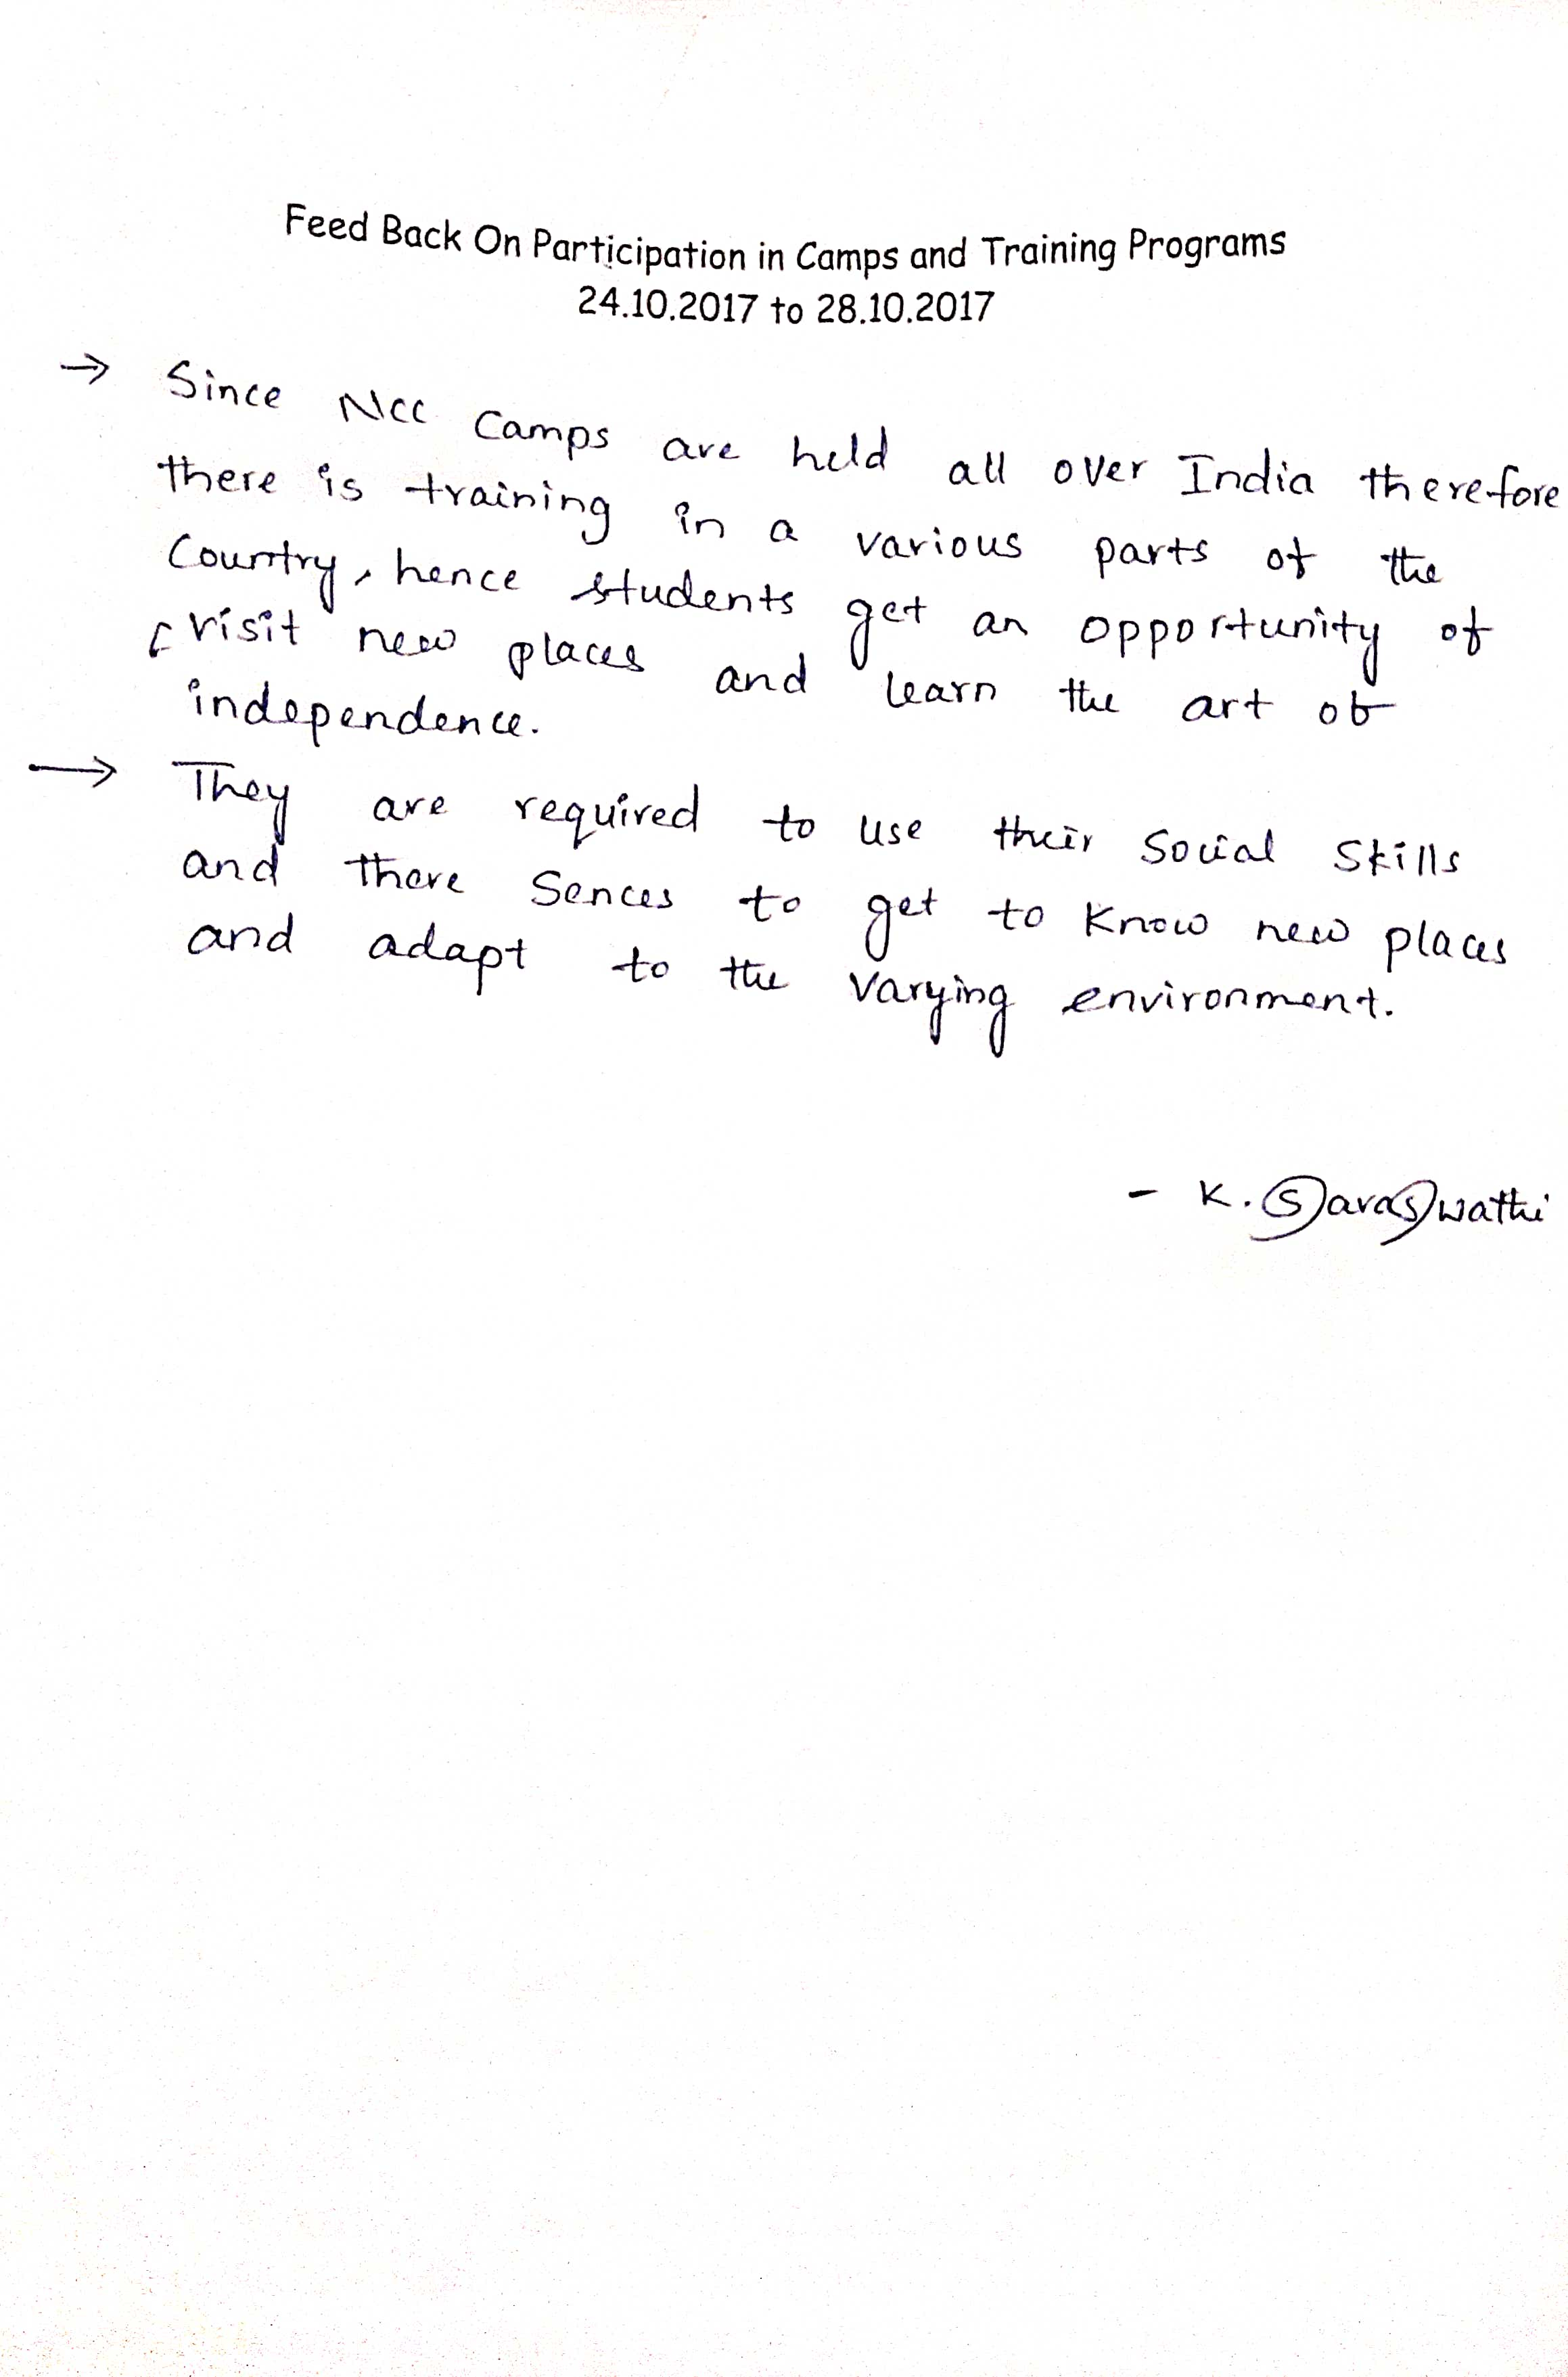 Feed Back On Participation in Camps and Training Programs
24.10.2017 to 28.10.2017
→ Since NCC Camps are held all over India therefore
there is training in a various parts of the
Country, hence students get an opportunity of
visit new places and learn the art of
independence.
→ They are required to use their Social Skills
and there Sences to get to Know new places
and adapt to the varying environment.
- K. Saraswathi